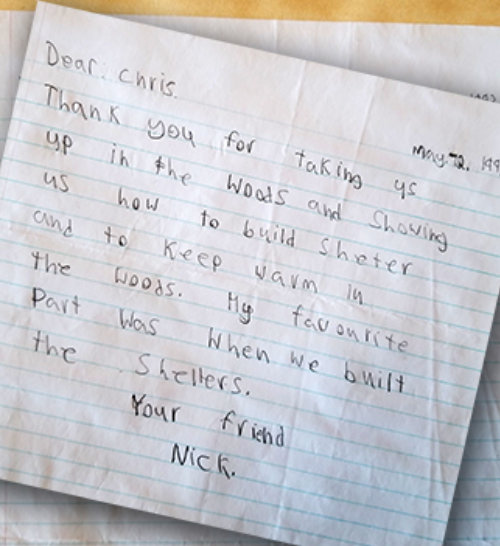 Dear. Chris.
May. 12. 199
Thank you for taking us
up in the woods and showing
us how to build sheter
and to keep warm in
the woods. My favourite
Part was when we built
the shelters.
Your friend
Nick.